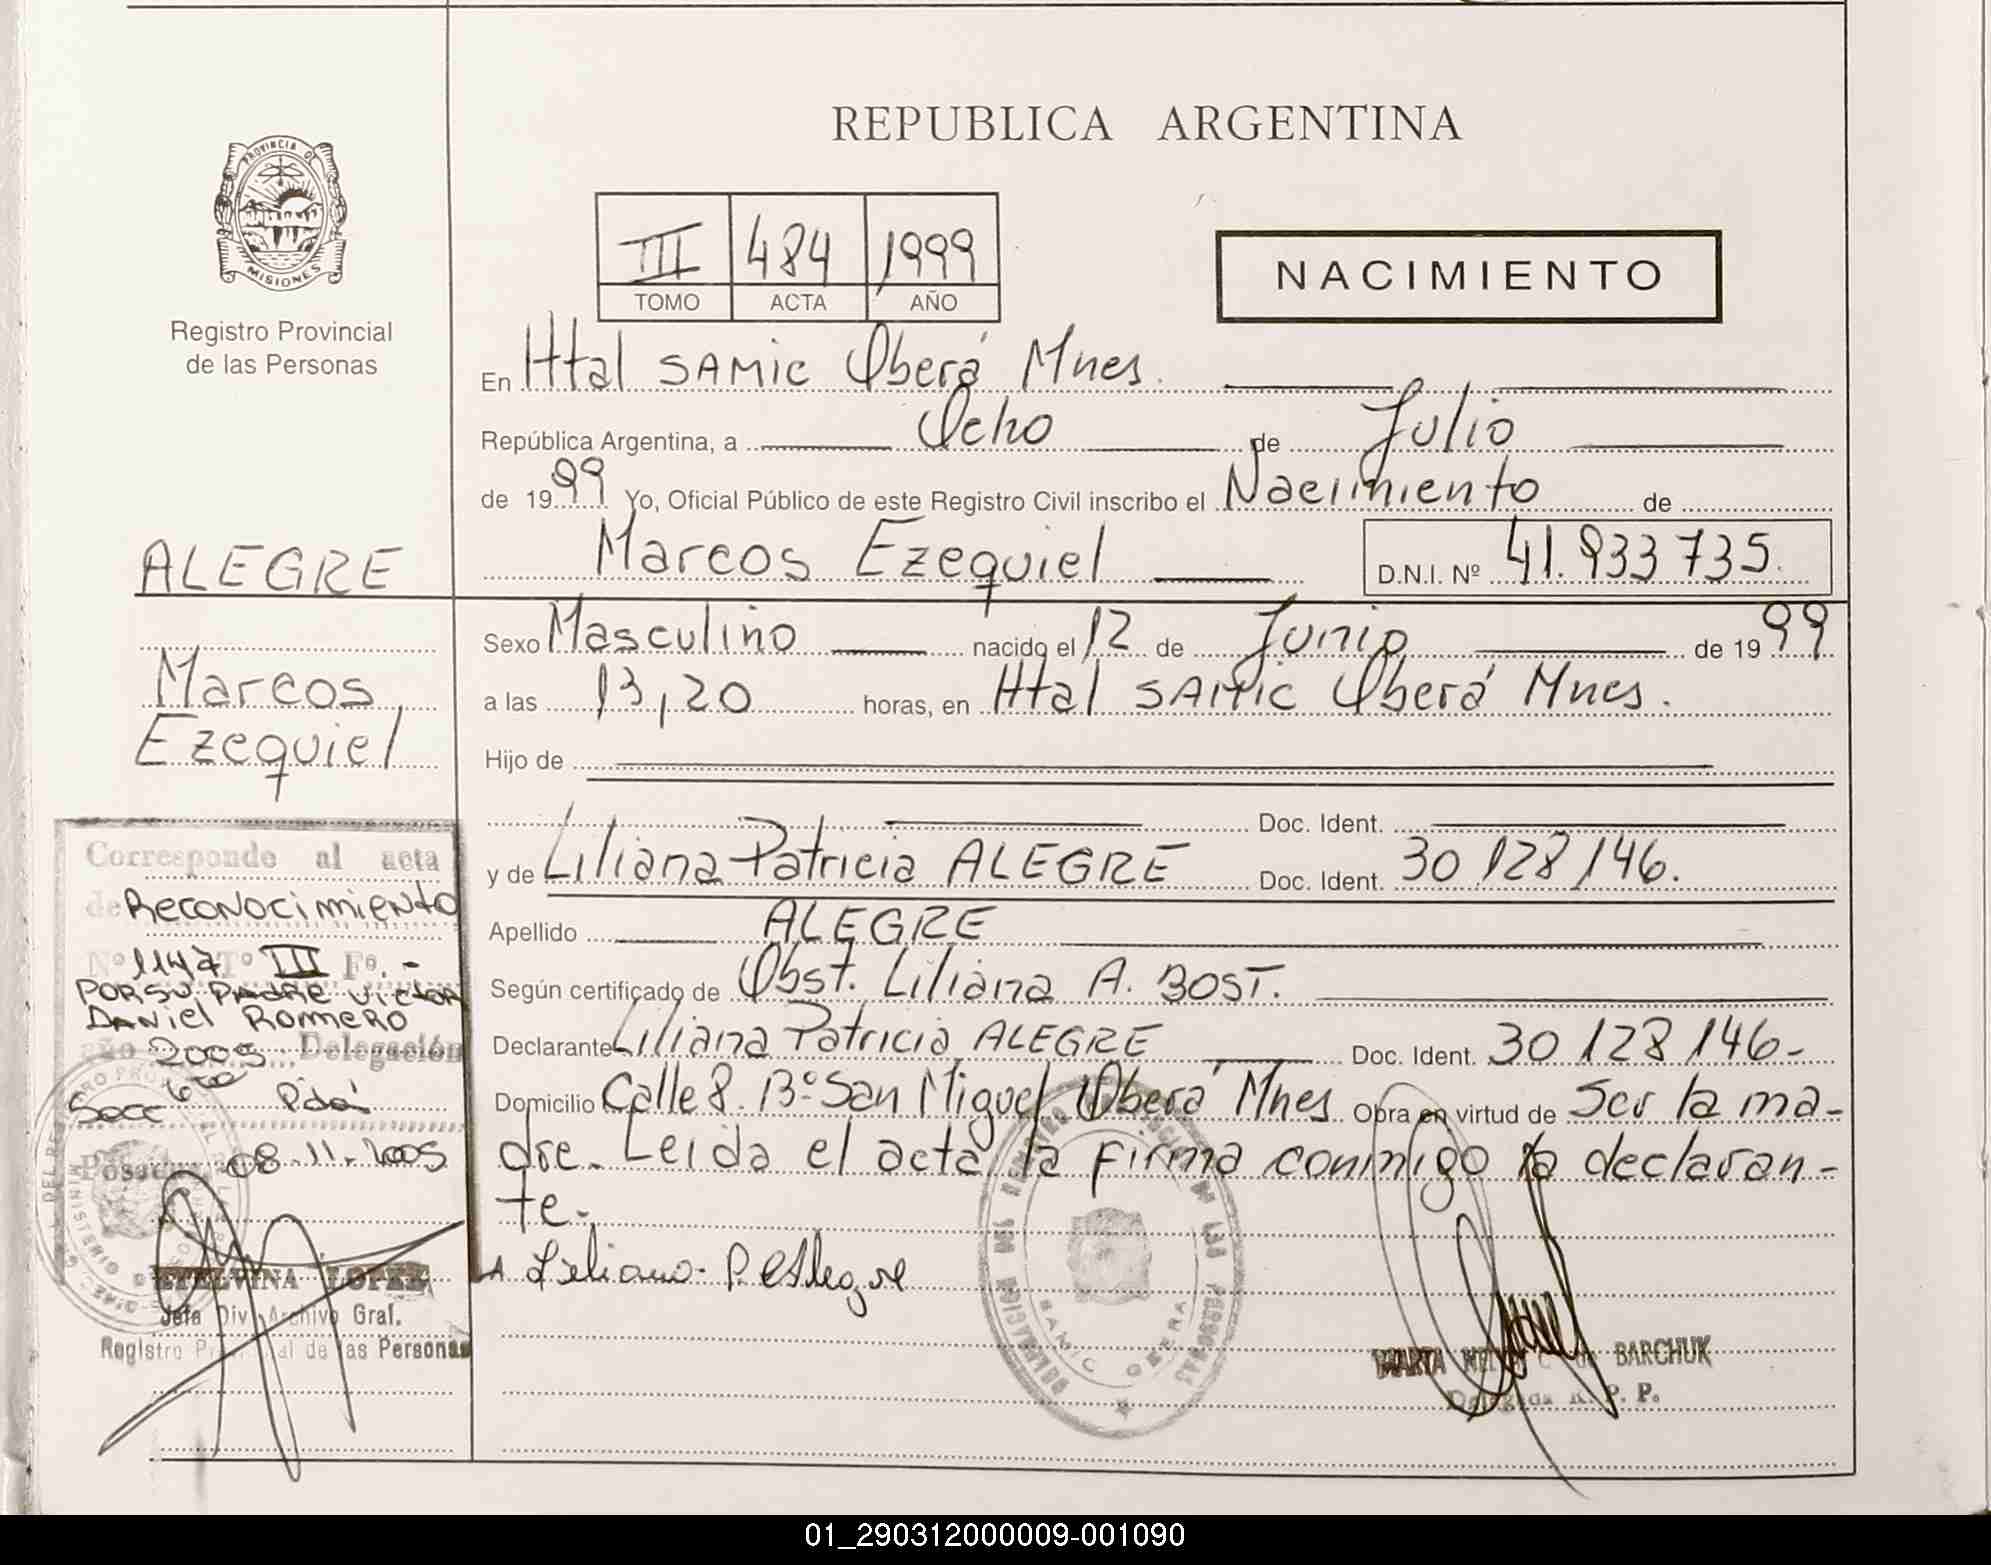 REPUBLICA ARGENTINA
PROVINCIA DE
MISIONES
Registro Provincial
de las Personas
III 484 1999
TOMO ACTA AÑO
NACIMIENTO
En Htal SAMIC Oberá Mnes.
República Argentina, a Ocho de Julio
de 1999 Yo, Oficial Público de este Registro Civil inscribo el Nacimiento de
Marcos Ezequiel D.N.I. Nº 41.933735.
Sexo Masculino nacido el 12 de Junio de 1999
a las 13,20 horas, en Htal SAMIC Oberá Mnes.
Hijo de
Doc. Ident.
y de Liliana Patricia ALEGRE Doc. Ident. 30.128.146.
Apellido ALEGRE
Según certificado de Obst. Liliana A. BOST.
Declarante Liliana Patricia ALEGRE Doc. Ident. 30 128 146-
Domicilio Calle 8. Bº San Miguel Oberá Mnes Obra en virtud de Ser la ma-
dre. Leida el acta la firma conmigo la declaran-
te.
Liliana P. Alegre
SAMIC OBERA
MARTA BARCHUK
Delegada R. P. P.
ALEGRE
Marcos
Ezequiel
Corresponde al acta
de Reconocimiento
Nº 1147 Tº III Fº. -
POR SU PADRE VICTOR
DANIEL ROMERO
año 2005 Delegación
Secc 6ta Pdas
Posadas, 08.11.2005
ETELVINA LOPEZ
Jefa Div. Archivo Gral.
Registro Provincial de las Personas
01_290312000009-001090